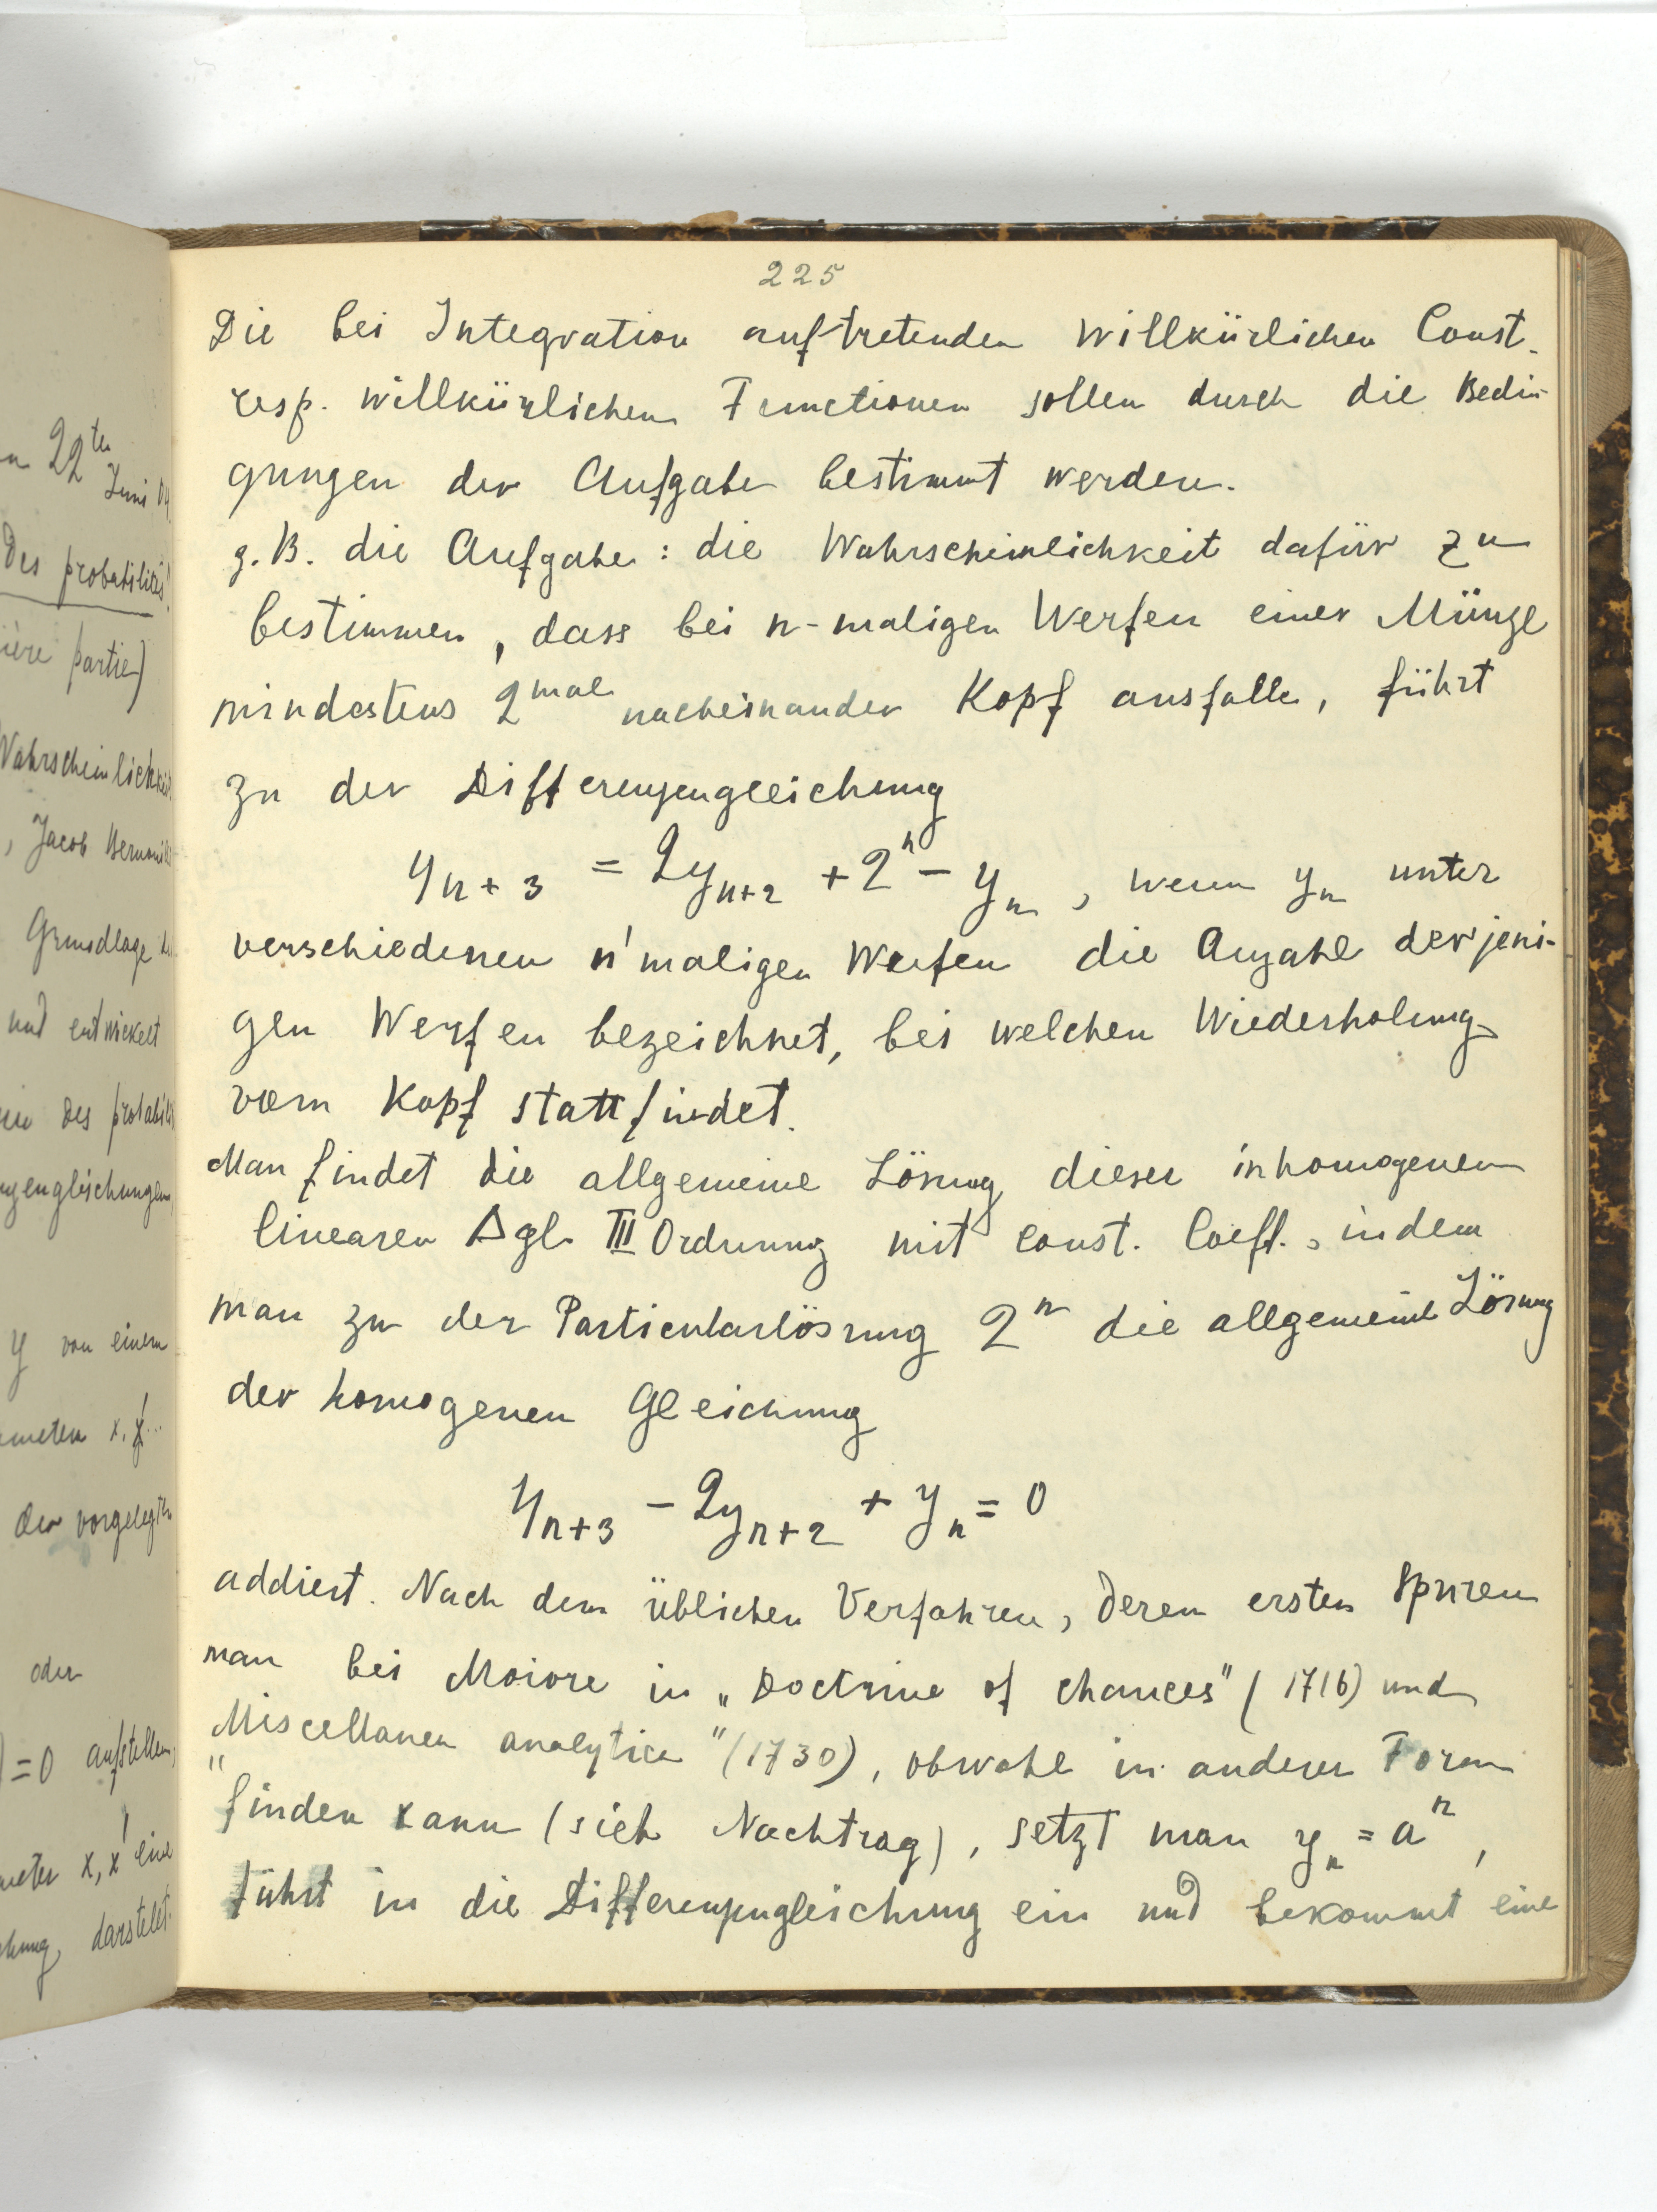 n 22ten
Juni 04
des probabilités!
ière partie)
Wahrscheinlichkeit
, Jacob Bernoulli
Grundlage
und entwickelt
des probabili
ngengleichungen
y von einem
x, x'...
der vorgelegten
oder
) = 0 aufstellen,
meter x, x' eine
chung, darstellt.
225
Die bei Integration auftretenden willkürlichen Const.
resp. willkürlichen Functionen sollen durch die Bedin-
gungen der Aufgabe bestimmt werden.
z. B. die Aufgabe: die Wahrscheinlichkeit dafür zu
bestimmen, dass bei n-maligen Werfen einer Münze
mindestens 2mal nacheinander Kopf ausfalle, führt
zu der Differenzengleichung
yₙ₊₃ = 2yₙ₊₂ + 2ⁿ - yₙ, wenn yₙ unter
verschiedenen n'maligen Werfen die Anzahl derjeni-
gen Werfen bezeichnet, bei welchen Wiederholung
vom Kopf stattfindet.
Man findet die allgemeine Lösung dieser inhomogenen
linearen Δgl. III Ordnung mit const. Coeff., indem
man zu der Particularlösung 2ⁿ die allgemeine Lösung
der homogenen Gleichung
yₙ₊₃ - 2yₙ₊₂ + yₙ = 0
addiert. Nach dem üblichen Verfahren, deren ersten Spuren
man bei Moivre in „Doctrine of chances" (1716) und
„Miscellanea analytica" (1730), obwohl in anderer Form
finden kann (sieh Nachtrag), setzt man yₙ = aⁿ,
führt in die Differenzengleichung ein und bekommt eine